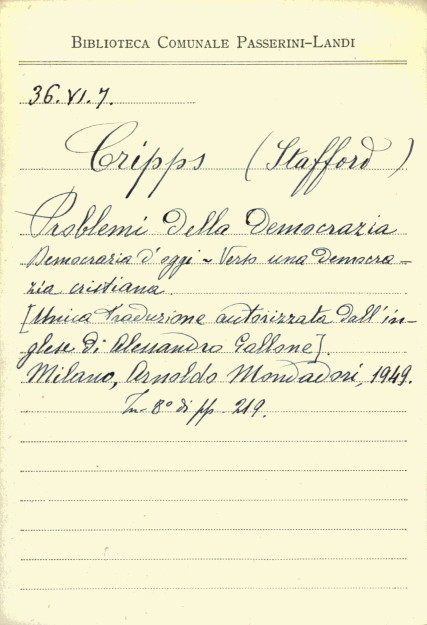 BIBLIOTECA COMUNALE PASSERINI-LANDI
36.VI.7.
Cripps (Stafford)
Problemi della Democrazia
Democrazia d'oggi - Verso una democra-
zia cristiana
[Unica traduzione autorizzata dall'in-
glese di Alessandro Gallone].
Milano, Arnoldo Mondadori, 1949.
In-8° di pp. 219.